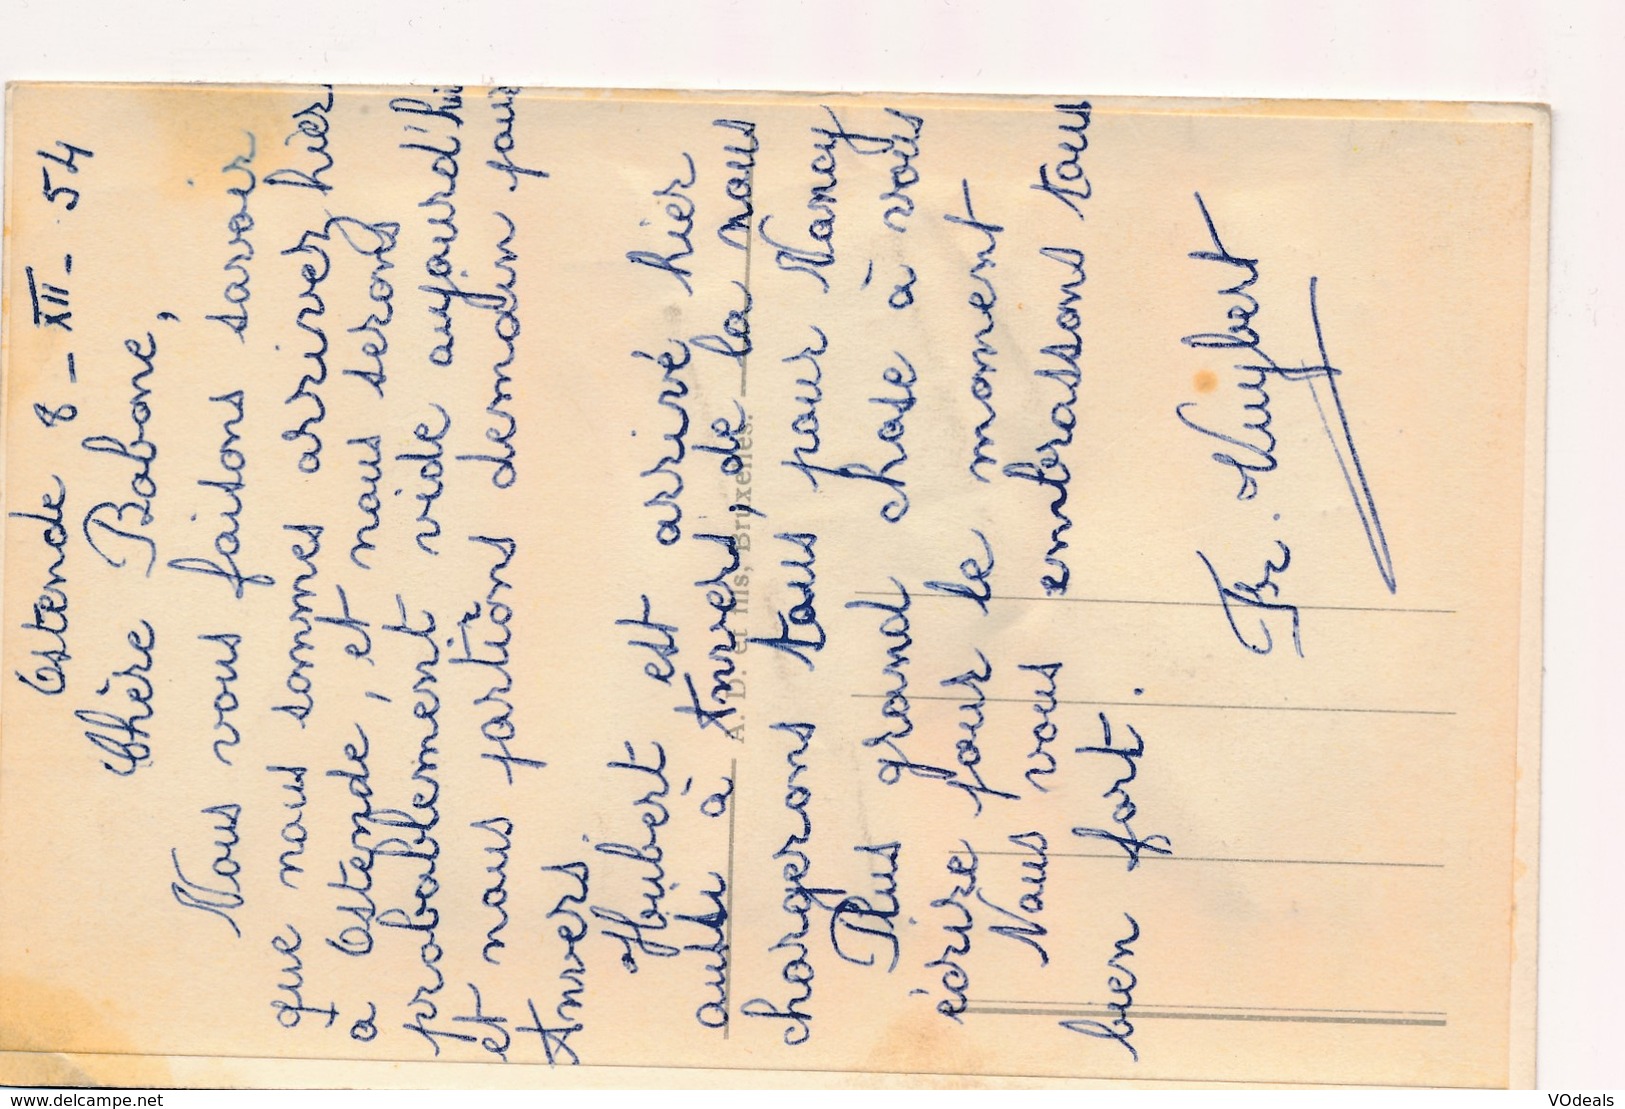 Ostende 8 - XII - 54
Chère Bobonne,
Nous vous faisons savoir
que nous sommes arriver hier
à Ostende, et nous serons
probablement vide aujourd'hui
et nous partirons demain pour
Anvers.
Houbert est arrivé hier
aussi à Anvers, de la nous
chargerons tous pour Nancy
Plus grand chose à vous
écrire pour le moment
Nous vous embrassons tous
bien fort.
Fr. Huybert
A. D. et fils, Bruxelles.
www.delcampe.net
VOdeals